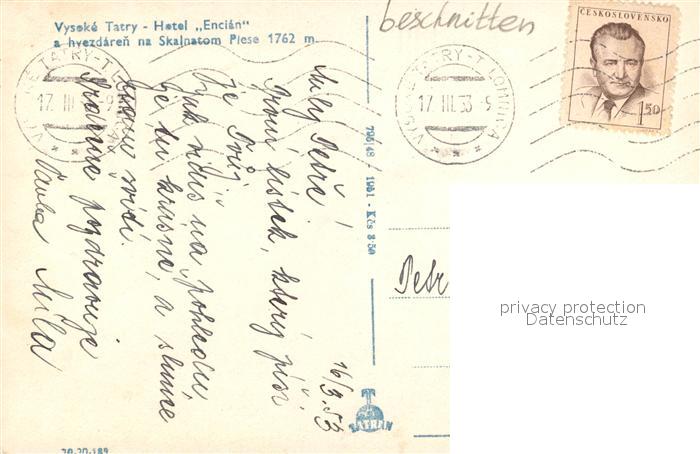 Vysoké Tatry - Hotel „Encián"
a hvezdáreň na Skalnatom Plese 1762 m
beschnitten
ČESKOSLOVENSKO
1.50
17. III. 53 - 9
VYSOKÉ TATRY - T. LOMNICA
17. III. 53 - 9
16/3. 53
Milý Petře!
První lístek, který píši
je Tvůj.
Jak vidíš na pohledu
je tu krásně, a slunce
svítí.
Srdečně pozdravuje
Míla
706/48 / 1951 - Kčs 3·50
TATRAN
Petr
privacy protection
Datenschutz
20-20-189